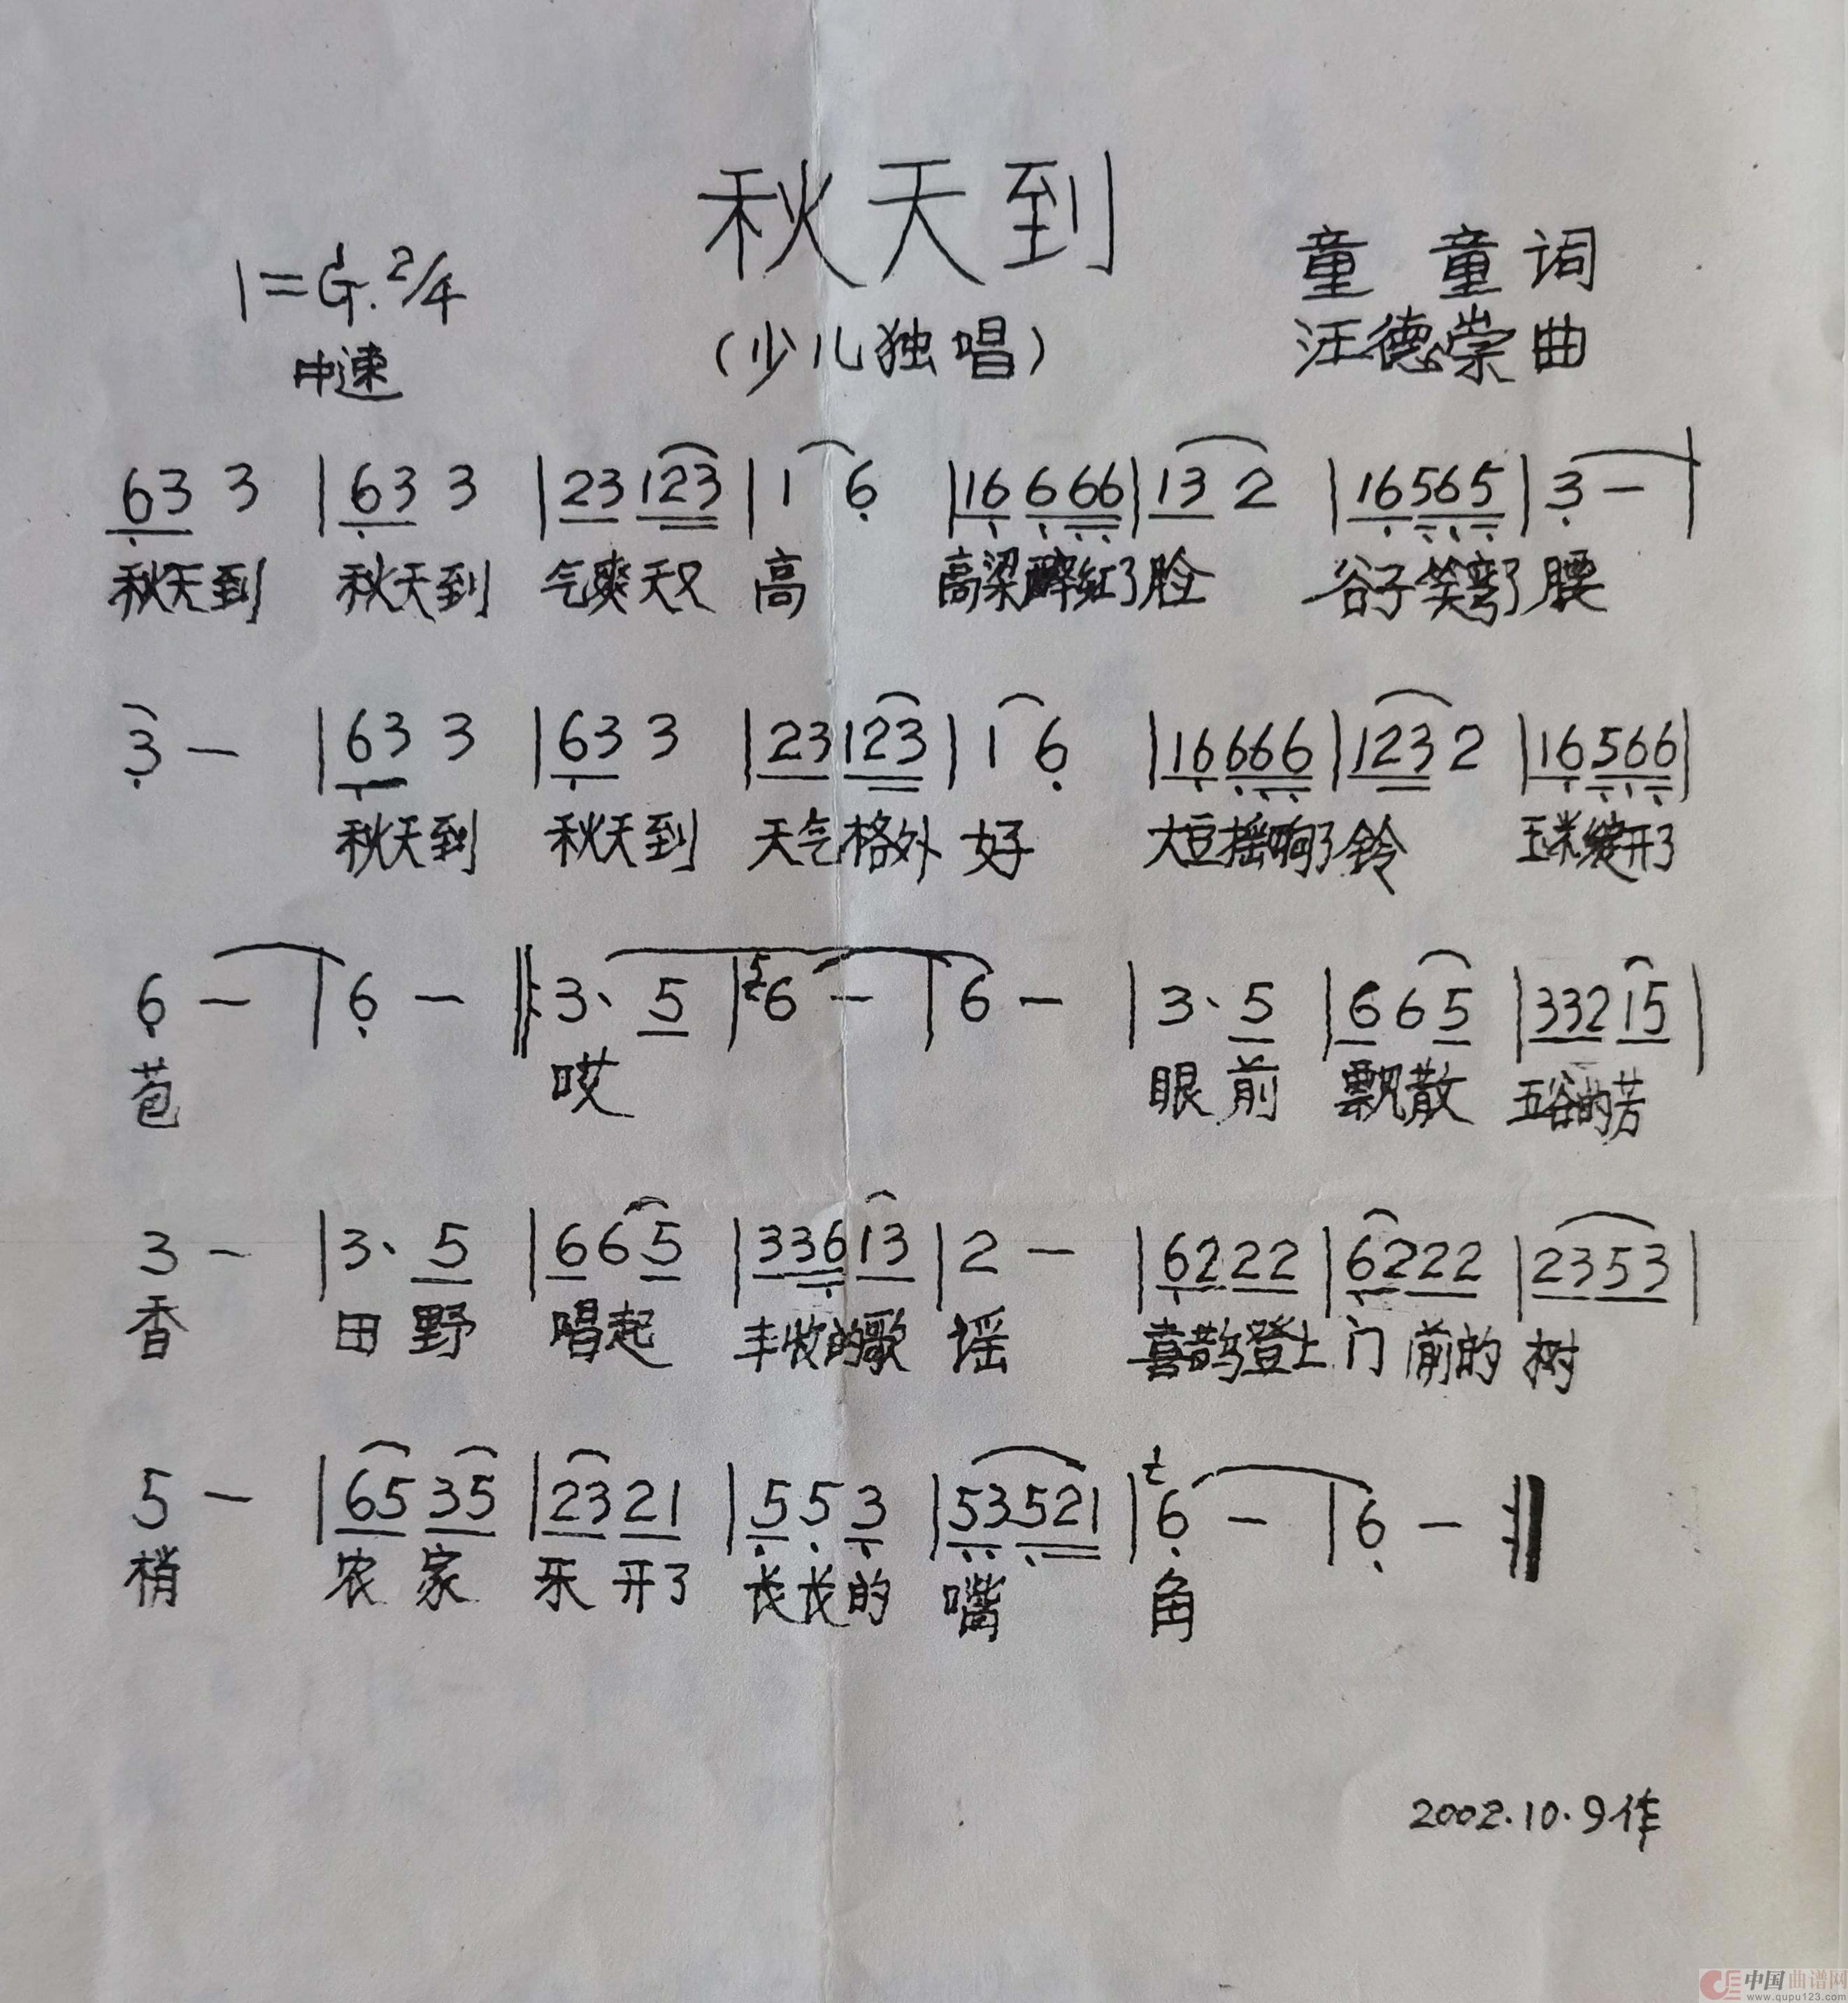 秋天到
1=G.2/4
童 童词
中速
(少儿独唱)
汪德崇曲
63 3 | 63 3 | 23 123 | 1 6 | 16 666 | 13 2 | 16565 | 3 — |
秋天到 秋天到 气爽天又 高 高梁醉红了脸 谷子笑弯了腰
3 — | 63 3 | 63 3 | 23123 | 1 6 | 16666 | 123 2 | 16566 |
秋天到 秋天到 天气格外 好 大豆摇响了铃 玉米绽开了
6 — | 6 — ‖: 3· 5 | 6 — | 6 — | 3· 5 | 6 6 5 | 332 15 |
苞 哎 眼前 飘散 五谷的芳
3 — | 3· 5 | 6 6 5 | 336 13 | 2 — | 6222 | 6222 | 2353 |
香 田野 唱起 丰收的歌 谣 喜鹊登上 门 前的 树
5 — | 65 35 | 23 21 | 5 5 3 | 53521 | 6 — | 6 — :‖
梢 农家 乐开了 长长的 嘴 角
2002.10.9作
中国曲谱网
www.qupu123.com